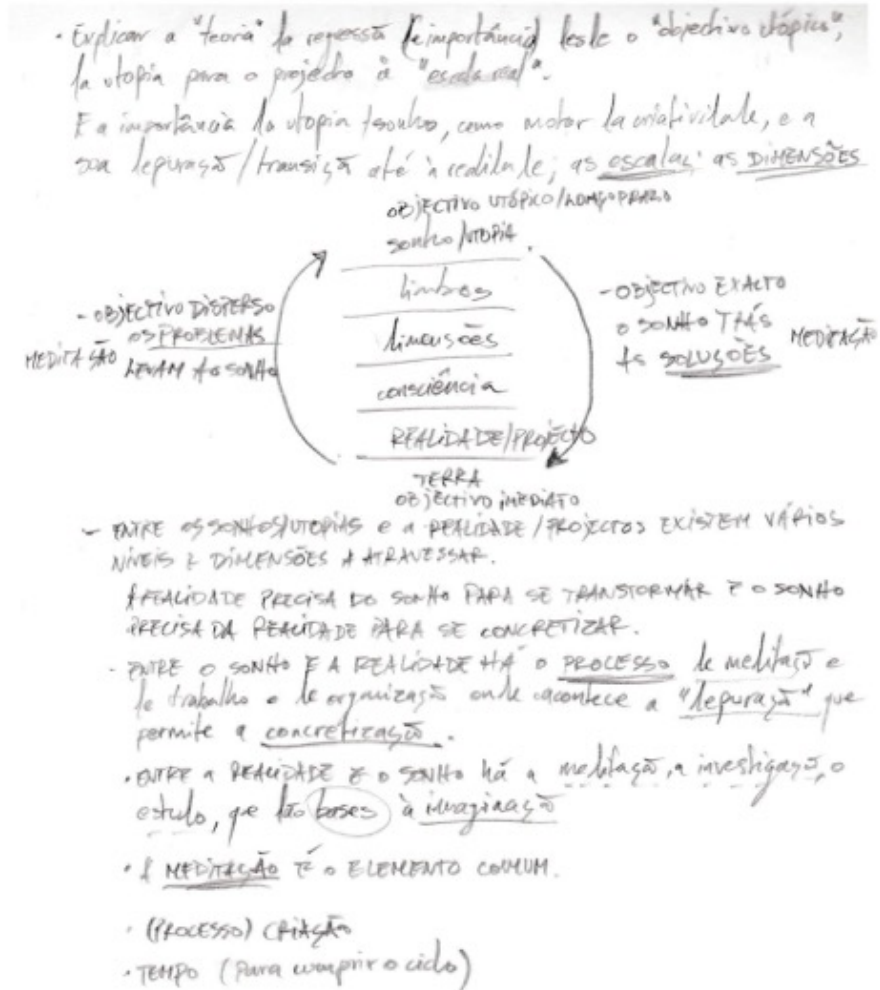 · Explicar a "teoria" da regressão (e importância) desde o "objectivo utópico",
da utopia para o projecto à "escala real".
E a importância da utopia/sonho, como motor da criatividade, e a
sua depuração/transição até à realidade; as escalas; as DIMENSÕES
OBJECTIVO UTÓPICO/LONGOPRAZO
sonho/UTOPIA
limbos
dimensões
consciência
REALIDADE/PROJECTO
TERRA
OBJECTIVO IMEDIATO
- OBJECTIVO DISPERSO
OS PROBLEMAS
LEVAM AO SONHO
MEDITAÇÃO
- OBJECTIVO EXACTO
O SONHO TRÁS
AS SOLUÇÕES
MEDITAÇÃO
- ENTRE OS SONHOS/UTOPIAS e a REALIDADE/PROJECTOS EXISTEM VÁRIOS
NÍVEIS E DIMENSÕES A ATRAVESSAR.
A REALIDADE PRECISA DO SONHO PARA SE TRANSFORMAR E O SONHO
PRECISA DA REALIDADE PARA SE CONCRETIZAR.
- ENTRE O SONHO E A REALIDADE HÁ O PROCESSO de meditação e
de trabalho e de organização onde acontece a "depuração" que
permite a concretização.
· ENTRE a REALIDADE E O SONHO há a meditação, a investigação, o
estudo, que dão bases à imaginação
· A MEDITAÇÃO É O ELEMENTO COMUM.
· (PROCESSO) CRIAÇÃO
· TEMPO (para cumprir o ciclo)